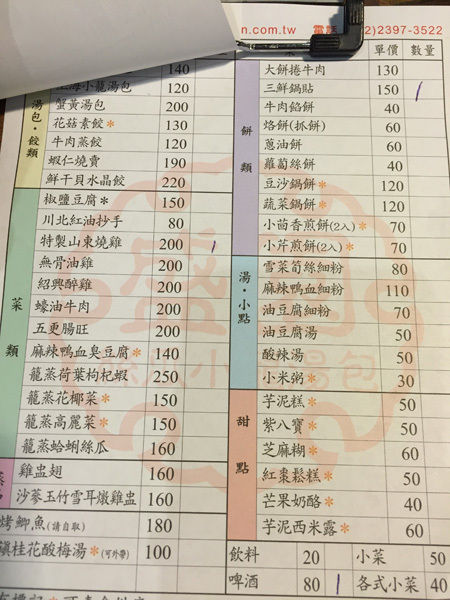 n.com.tw 電話 2)2397-3522
140
上海小籠湯包 120
湯包・餃類
蟹黃湯包 200
花菇素餃* 130
牛肉蒸餃 120
蝦仁燒賣 190
鮮干貝水晶餃 220
菜類
椒鹽豆腐* 150
川北紅油抄手 80
特製山東燒雞 200
無骨油雞 200
紹興醉雞 200
蠔油牛肉 200
五更腸旺 200
麻辣鴨血臭豆腐* 140
籠蒸荷葉枸杞蝦 250
籠蒸花椰菜* 150
籠蒸高麗菜* 150
籠蒸蛤蜊絲瓜 160
雞盅翅 160
沙蔘玉竹雪耳燉雞盅 160
烤鯽魚(請自取) 180
滇桂花酸梅湯*(可外帶) 100
單價 數量
餅類
大餅捲牛肉 130
三鮮鍋貼 150
牛肉餡餅 40
烙餅(抓餅) 60
蔥油餅 60
蘿蔔絲餅 40
豆沙鍋餅* 120
蔬菜鍋餅* 120
小茴香煎餅(2入)* 70
小芹煎餅(2入)* 70
湯・小點
雪菜筍絲細粉 80
麻辣鴨血細粉 110
油豆腐細粉 70
油豆腐湯 50
酸辣湯 50
小米粥* 30
甜點
芋泥糕* 50
紫八寶* 50
芝麻糊* 60
紅棗鬆糕* 50
芒果奶酪* 40
芋泥西米露* 60
飲料 20 小菜 50
啤酒 80 各式小菜 40